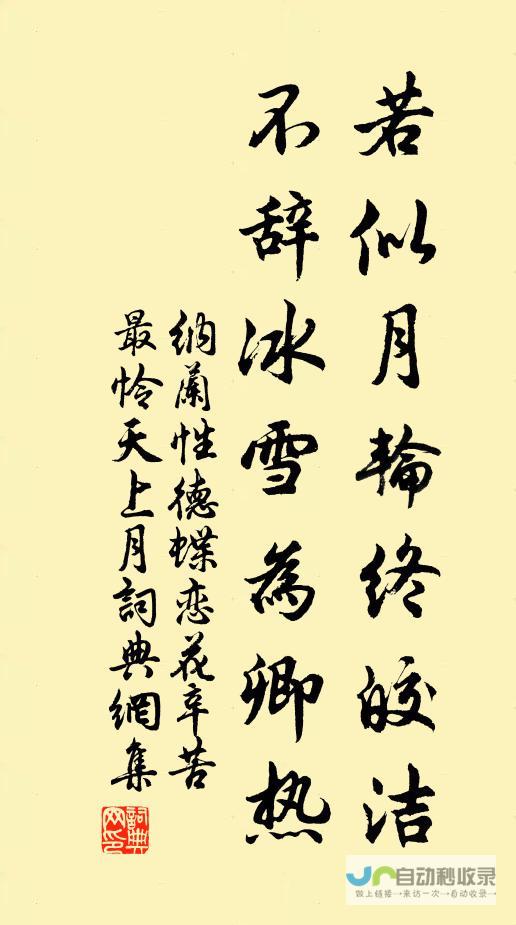 若似月輪终皎洁
不辞冰雪為卿热
纳蘭性德蝶恋花辛苦
最怜天上月詞典網集
詞典網印
自动秒收录
做上链接→来访一次→自动收录